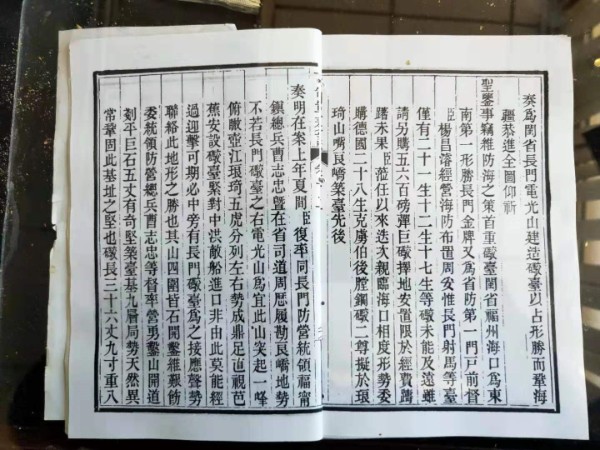 奏爲閩省長門電光山建造礮臺以占形勝而鞏海
疆恭進全圖仰祈
聖鑒事竊維防海之策首重礮臺閩省福州海口爲東
南第一形勝長門金牌又爲省防第一門戸前督
臣楊昌濬經營海防布置周妥惟長門射馬等臺
僅有二十一生十二生十七生等礮未能及遠雖
請另購五六百磅彈巨礮擇地安置限於經費躊
躇未果臣蒞任以來迭次親臨海口相度形勢委
購德國二十八生克虜伯後膛鋼礮二尊擬於琅
琦山嘴艮嶠築臺先後
奏明在案上年夏間臣復率同長門防營統領福甯
鎭總兵曹志忠曁在省司道周歷履勘艮嶠地勢
不若長門礮臺之右電光山爲宜此山突起一峰
俯瞰壺江琅琦五虎分列左右勢成鼎足直視芭
蕉安設礮臺緊對中洪敵船進口非由此莫能經
過迎擊可期必中旁有長門礮臺爲之接應聲勢
聯絡此地形之勝也其山四圍皆石開鑿維艱飭
委統領防營總兵曹志忠等督率營勇鑿山開道
剗平巨石五丈有奇堅築臺基九層局勢天然異
常鞏固此基址之堅也礮長三十六丈九寸重八